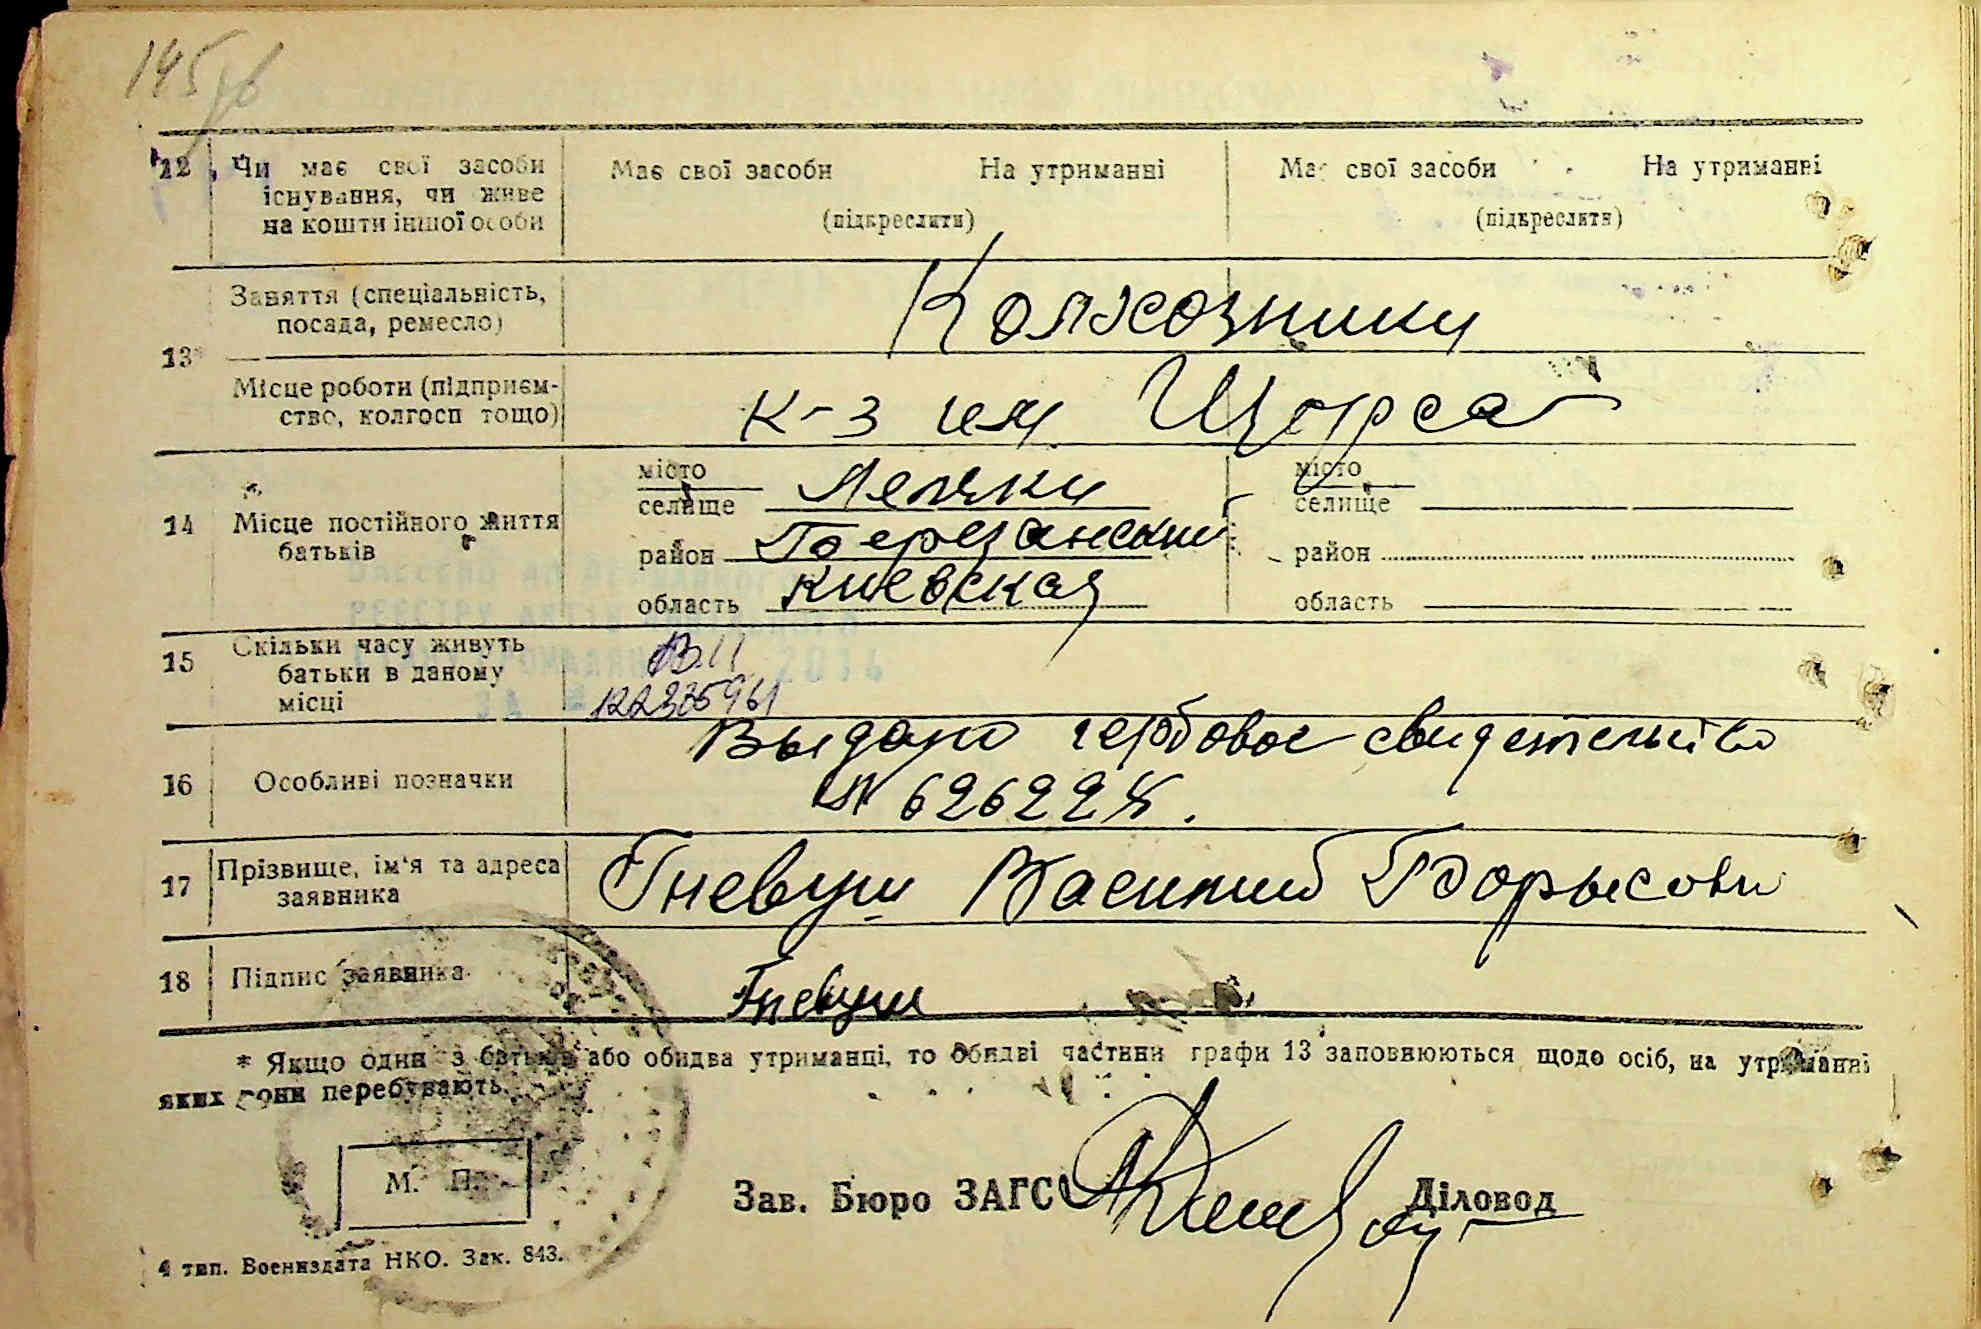 145
12 Чи має свої засоби існування, чи живе на кошти іншої особи
Має свої засоби На утриманні
(підкреслити)
Має свої засоби На утриманні
(підкреслити)
13*
Заняття (спеціальність, посада, ремесло)
Колхозники
Місце роботи (підприємство, колгосп тощо)
К-з им Щорса
14 Місце постійного життя батьків
місто
селище Лепяки
район Березанский
область Киевская
місто
селище
район
область
15 Скільки часу живуть батьки в даному місці
2014
16 Особливі позначки
Выдано гербовое свидетельство
№
17 Прізвище, ім'я та адреса заявника
Гневуш Василий Борысови
18 Підпис заявника
Гневуш
* Якщо один з батьків або обидва утриманці, то обидві частини графи 13 заповнюються щодо осіб, на утриманні
яких вони перебувають.
М. П.
Зав. Бюро ЗАГС Діловод
4 тип. Воениздата НКО. Зак. 843.